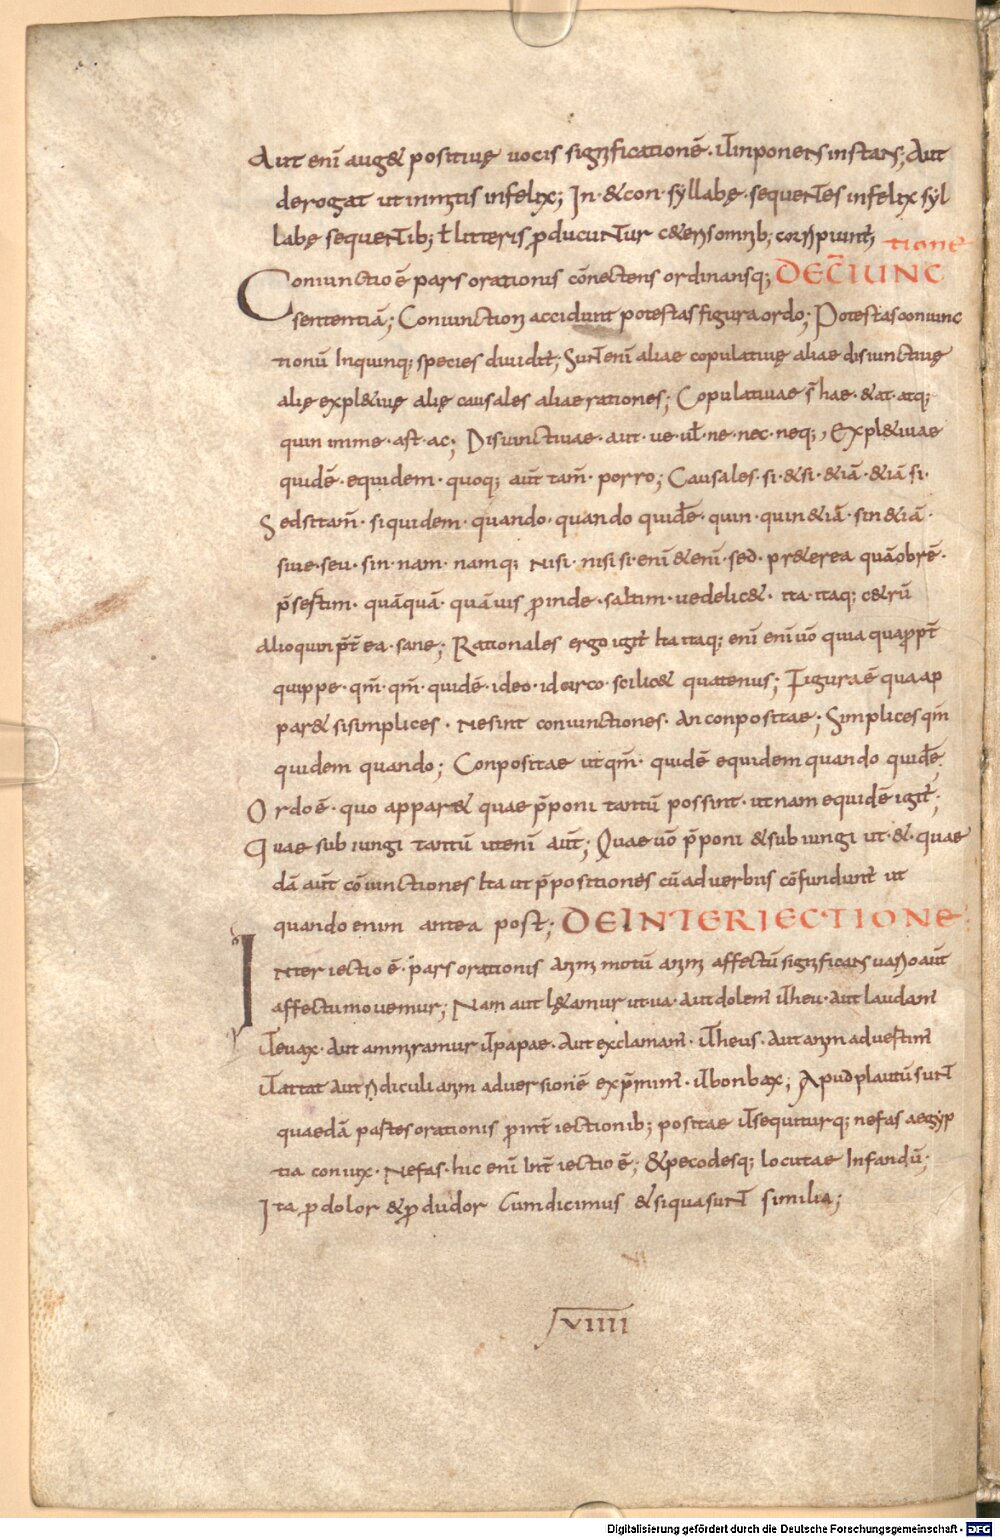 Aut enī aug& positiuę uocis significationē. ut̄ inponens instans; Aut
derogat ut inmitis infelix; In· &con· syllabę· sequentes infelix syl
labę sequentib; ł litteris ꝓducuntur c&erisomnib; corripiunt̄;
tione
Coniunctio ē pars orationis cōnectens ordinansq; DE C̄IUNC
sententiā; Coniunctioni accidunt potestas figura ordo; Potestas coniunc
tionū Inquinq; species diuidit̄; Sunt enī aliae copulatiuę aliae disiunctiuę
alię expl&iuę alię causales aliae rationes; Copulatiuae s̄ hae· &·at·atq;
quin imme·ast·ac; Disiunctiuae·aut·ue·uł·ne·nec·neq;, Expl&iuae
quidē·equidem·quoq; aut̄ tam̄· porro; Causales·si·&si·&iā·&iā si·
Sedsitam̄·siquidem·quando·quando quidē·quin·quin&iā·sin&iā·
siue·seu·sin·nam·namq; nisi·nisi si·enī &enī·sed·pr&erea quāobrē·
p̄sestim·quāquā·quāuis ꝓinde·saltim·uedelic&·ita·itaq; c&erū
alioquin p̄t̄ ea·sane; Rationales ergo igit̄ Ita itaq; enī enī uō quia quaꝓpt̄
quippe·qm̄·qm̄·quidē·ideo·idcirco·scilic& quatenus; Figura ē qua ap
par& sisimplices· Nesint coniunctiones· An conpositae; Simplices qm̄
quidem quando; Conpositae ut qm̄· quidē equidem quando quidē;
Ordo ē·quo appar& quae p̄poni tantū possint·ut nam equidē igit̄;
Quae sub iungi tantū ut enī aut̄; Quae uō p̄poni & sub iungi ut·&·quae
dā aut̄ cōiunctiones Ita ut p̄positiones cū aduerbiis cōfundunt̄ ut
quando enim antea post; DE INTERIECTIONE
Interiectio ē·pars orationis animi motū animi affectū significans uario aut̄
affectu mouemur; Nam aut l&amur ut·ua·Aut dolem̄ ut̄ heu·Aut laudam̄
ut̄ euax·Aut ammiramur ut̄ papae·Aut exclamam̄·ut̄ heus·Aut anim aduestim̄
ut̄ attat Aut ridiculi anim aduersionē exp̄mim̄·ut̄ bonbax; Apud plautū sunt
quaedā pastes orationis ꝓ int̄ iectionib; positae ut̄ sequiturq; nefas aegyp
tia coniux·Nefas·hic enī Int̄ iectio ē; &pecodesq; locutae Infandū;
Ita ꝓ dolor &ꝓ dudor Cum dicimus & siqua sunt similia;
VIIII
Digitalisierung gefördert durch die Deutsche Forschungsgemeinschaft - DFG